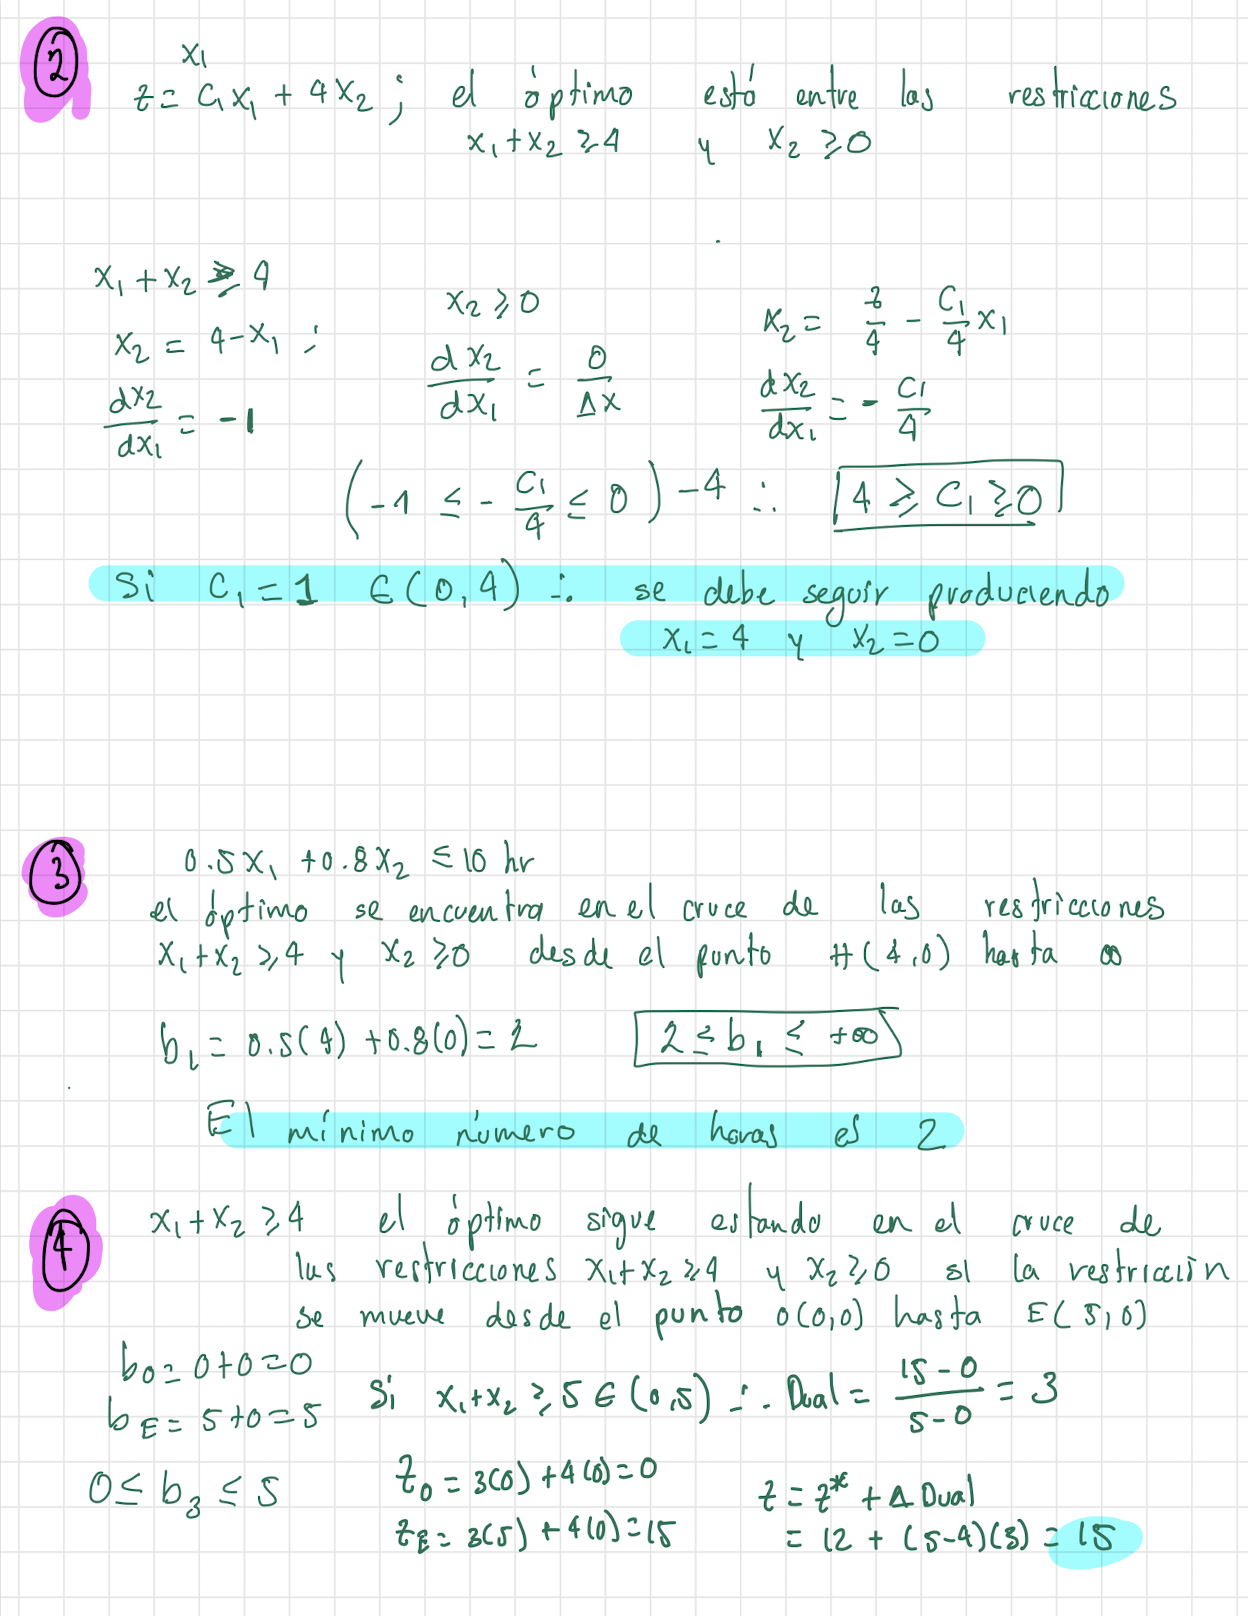 2
x1
z = C1x1 + 4x2 ; el óptimo está entre las restricciones
x1 + x2 ≥ 4 y x2 ≥ 0
x1 + x2 ≥ 4 x2 ≥ 0 x2 = z/4 - C1/4 x1
x2 = 4 - x1 ;
dx2/dx1 = -1 dx2/dx1 = 0/Δx dx2/dx1 = - C1/4
(-1 ≤ - C1/4 ≤ 0) -4 ∴ 4 ≥ C1 ≥ 0
Si C1 = 1 ∈ (0,4) ∴ se debe seguir produciendo
x1 = 4 y x2 = 0
3
0.5x1 + 0.8x2 ≤ 10 hr
el óptimo se encuentra en el cruce de las restricciones
x1 + x2 ≥ 4 y x2 ≥ 0 desde el punto H(4,0) hasta ∞
b1 = 0.5(4) + 0.8(0) = 2 2 ≤ b1 ≤ +∞
El mínimo número de horas es 2
4
x1 + x2 ≥ 4 el óptimo sigue estando en el cruce de
las restricciones x1 + x2 ≥ 4 y x2 ≥ 0 si la restricción
se mueve desde el punto O(0,0) hasta E(5,0)
bO = 0 + 0 = 0
bE = 5 + 0 = 5 Si x1 + x2 ≥ 5 ∈ (0,5) ∴ Dual = 15 - 0/5 - 0 = 3
0 ≤ b3 ≤ 5
zO = 3(0) + 4(0) = 0 z = z* + Δ Dual
zE = 3(5) + 4(0) = 15 = 12 + (5-4)(3) = 15